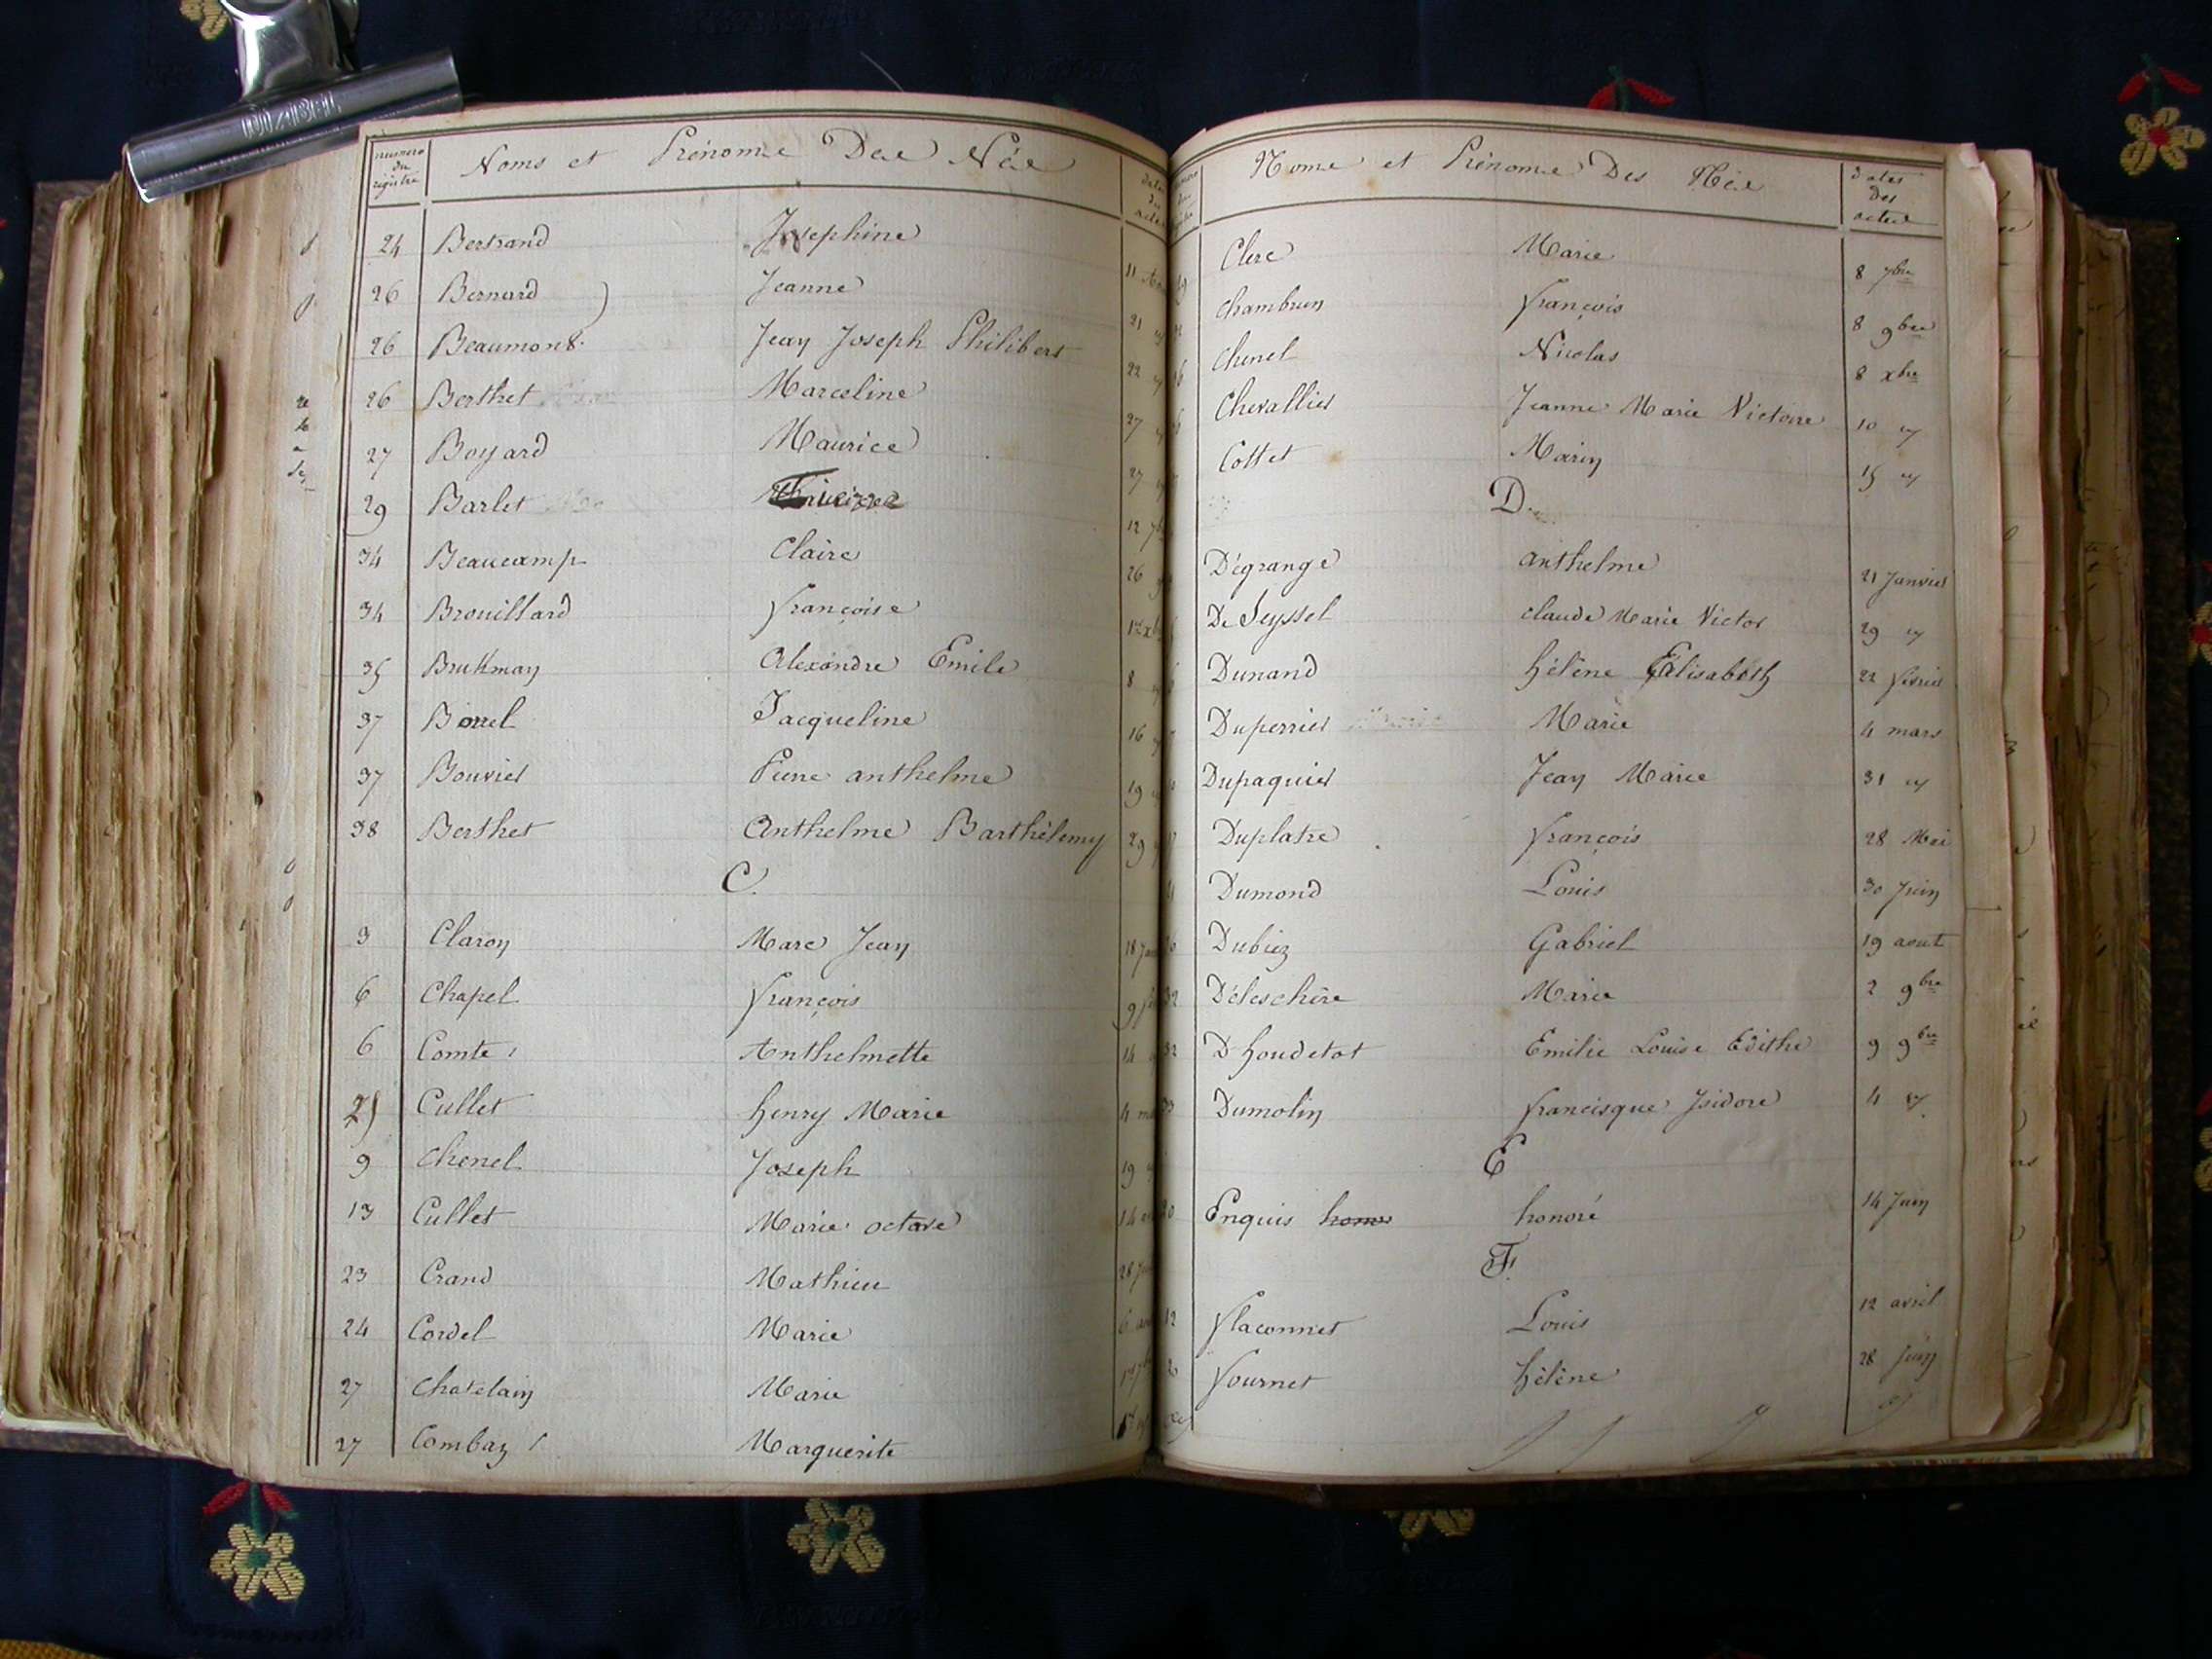 numero du registre Noms et Prénoms Des Nés dates des actes
24 Bertrand Josephine 11
26 Bernard Jeanne 21
26 Beaumont Jean Joseph Philibert 22
26 Berthet Marceline 27
27 Boyard Maurice 27
29 Barlet 12
34 Beaucamp Claire 26
34 Brouillard françoise
35 Brukman Alexandre Emile 8
37 Borrel Jacqueline 16
37 Bouvier anthelme 19
38 Berthet Anthelme Barthélemy 29
C.
3 Claron Marc Jean 18
6 Chapel françois 9
6 Comte Anthelmette 14
Cullet henry Marie 4
9 Chenel Joseph 19
13 Cullet Marie octave 14
23 Crand Mathieu 28
24 Cordel Marie 6
27 Chatelain Marie
27 Combaz Marguerite
Noms et Prénoms Des Nés dates des actes
Clerc Marie 8 7bre
Chambrun françois 8 9bre
Chenel Nicolas 8 xbre
Chevallier Jeanne Marie Victoire 10
Cottet Marin 15
D.
Dégrange anthelme 21 Janvier
De Seyssel claude Marie Victor 29
Dunand hélène Elisabeth 22 février
Duperrier Marie 4 mars
Dupaquier Jean Marie 31
Duplatre françois 28 Mai
Dumond Louis 30 Juin
Dubiez Gabriel 19 aout
32 Déleschère Marie 2 9bre
32 D'houdetot Emilie Louise Edithe 9 9bre
Dumolin francisque Isidore 4
E
Enquis honoré 14 Juin
F.
12 flaconnet Louis 12 avril
fournet hélène 28 Juin